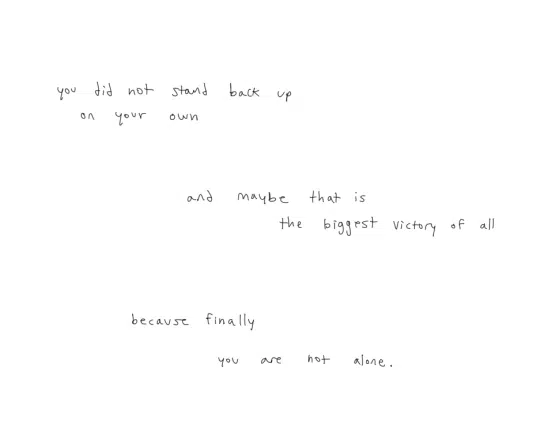 you did not stand back up
on your own
and maybe that is
the biggest victory of all
because finally
you are not alone.